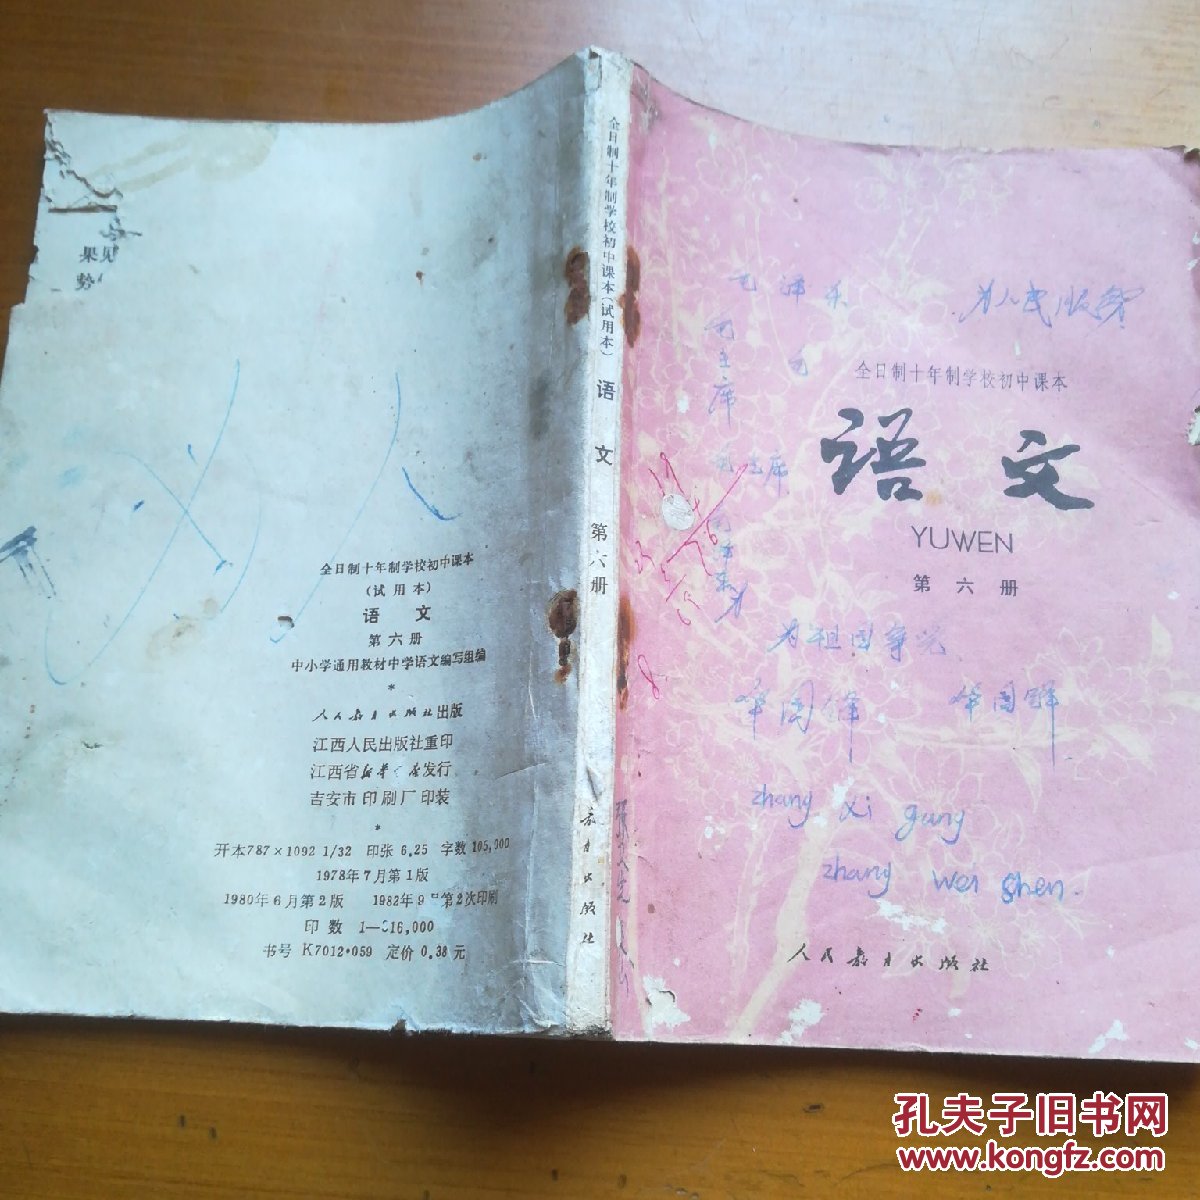 果
全日制十年制学校初中课本
(试用本)
语 文
第六册
中小学通用教材中学语文编写组编
*
人民教育出版社出版
江西人民出版社重印
江西省新华书店发行
吉安市印刷厂印装
*
开本787×1092 1/32 印张 6.25 字数 105,000
1978年7月第1版
1980年6月第2版 1982年9月第2次印刷
印数 1—316,000
书号 K7012·059 定价 0.38 元
全日制十年制学校初中课本(试用本) 语文 第六册
教育出版社
毛泽东
为人民服务
毛主席
毛
毛主席
全日制十年制学校初中课本
语文
YUWEN
第六册
为祖国争光
华国锋 华国锋
zhang xi gang
zhang wei shen.
人民教育出版社
孔夫子旧书网
www.kongfz.com